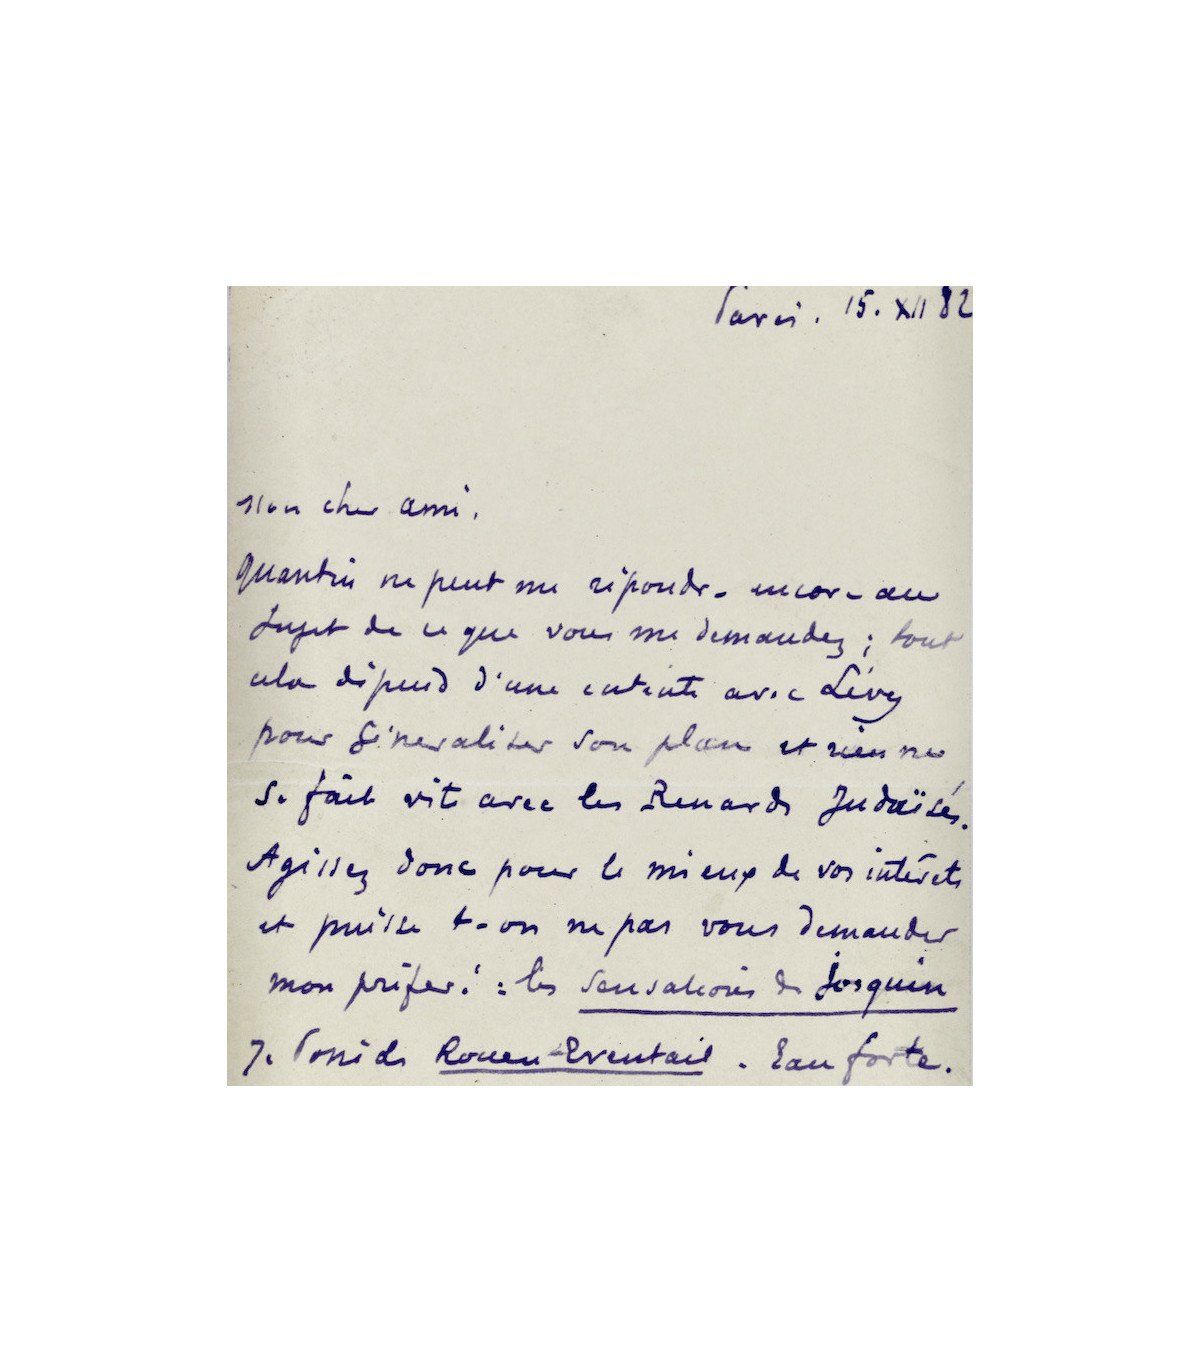 Paris. 15. XII 82
Mon cher ami.
Quantin ne peut me répondre encore au
sujet de ce que vous me demandez ; tout
cela dépend d'une entente avec Lévy
pour généraliser son plan et rien ne
se fait vite avec les Renards Judaïsés.
Agissez donc pour le mieux de vos intérêts
et puisse t-on ne pas vous demander
mon préféré : les sensations de Josquin
Je possède Rouen-Eventail. Eau forte.